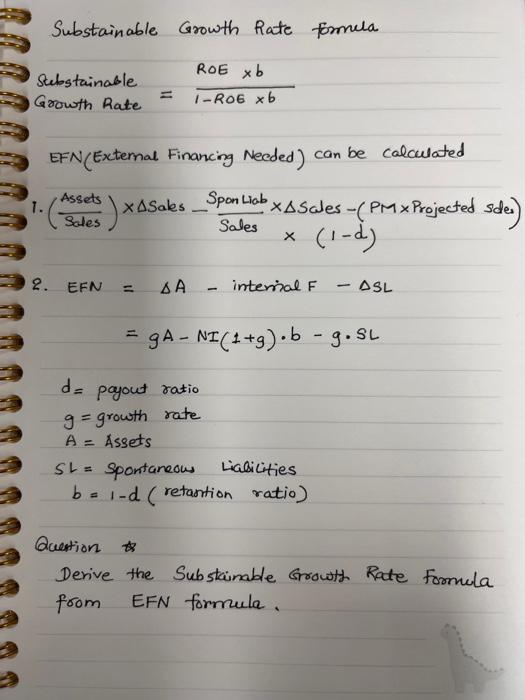 Substainable Growth Rate formula
Substainable Growth Rate = ROE × b / 1 - ROE × b
EFN (External Financing Needed) can be calculated
1. (Assets / Sales) × ΔSales - Spon Liab / Sales × ΔSales - (PM × Projected sales)
× (1-d)
2. EFN = ΔA - internal F - ΔSL
= gA - NI(1+g)·b - g·SL
d = payout ratio
g = growth rate
A = Assets
SL = Spontaneous Liabilities
b = 1-d (retantion ratio)
Question
Derive the Substainable Growth Rate Formula
from EFN formula.